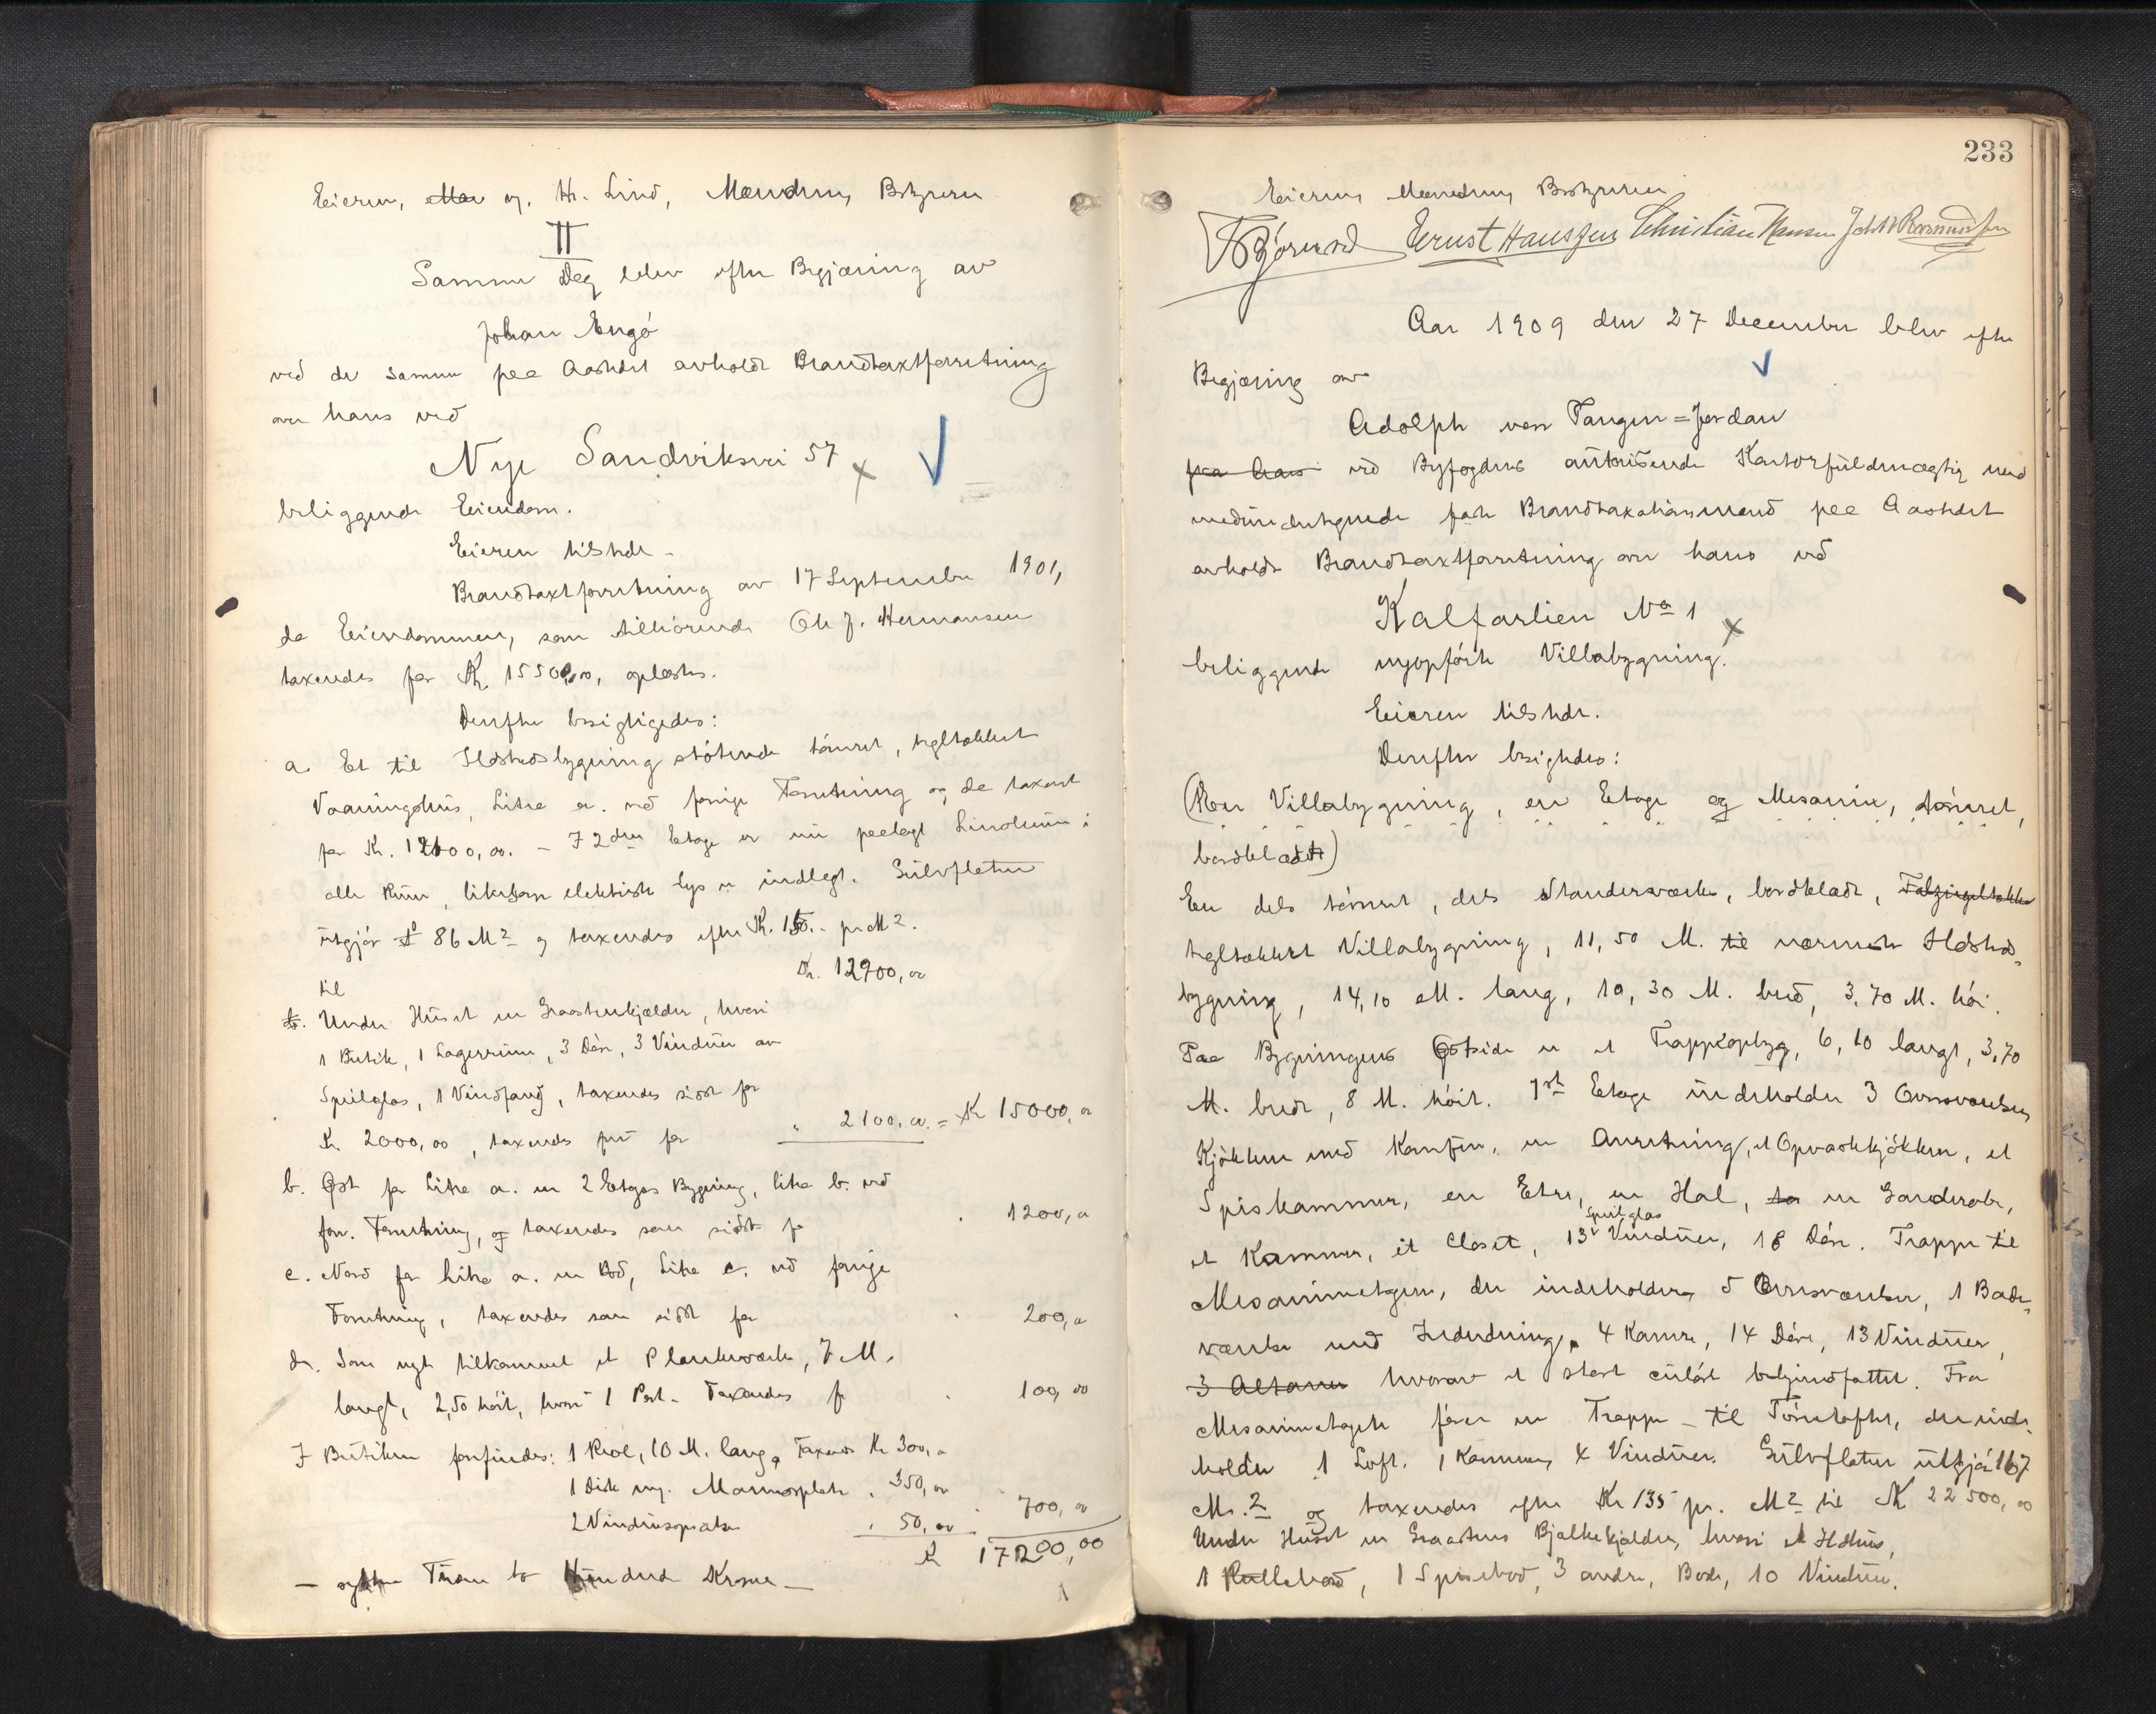 Eieren, og Hr. Lind, Mændene, Bestyreren
II
Samme Dag blev efter Begjæring av
Johan Engø
ved de samme paa Aastedet avholdt Brandtaxtforretning
over hans ved
Nye Sandviksvei 57
beliggende Eiendom.
Eieren tilstede.
Brandtaxtforretning av 17 September 1901,
da Eiendommen, som tilhørende Ole J. Hermansen
taxeredes for Kr. 15500,00, oplæstes.
Derefter besigtigedes:
a. Et til Ildstedsbygning støtende tømret, tegltækket
Vaaningshus, Litra a. ved forrige Forretning og da taxeret
for Kr. 12000,00. - I 2den Etage er nu paalagt Linoleum i
alle Rum, likesom elektrisk lys er indlagt. Gulvflaten
utgjør 86 M2 og taxeredes efter Kr. 150.- pr M2.
til Kr. 12900,00
Under Huset en Graastenskjælder, hvori
1 Butik, 1 Lagerrum, 3 Døre, 3 Vinduer av
Speilglas, 1 Vindfang, taxeredes sidst for
Kr. 2000,00, taxeredes nu for " 2100,00. = Kr 15000,00
b. Øst for Litra a. en 2 Etages Bygning, litra b. ved
forr. Forretning, og taxeredes som sidst for 1200,00
c. Nord for Litra a. en Bod, Litra c. ved forrige
Forretning, taxeredes som sidst for 200,00
d. Som nyt tilkommet et Plankeværk, 7 M.
langt, 2,50 høit, hvori 1 Port. Taxeredes for 100,00
I Butiken forfindes: 1 Reol, 10 M. lang, Taxeres Kr 300,00
1 Disk m. Marmorplate " 350,00
2 Vinduesopsatser " 50,00 700,00
Kr 17200,00
- sytten Tusen to Hundrede Kroner -
233
Eieren, Mændene, Bestyreren
Ernst Hanssen Christian Hansen Joh. N. Rasmussen
Aar 1909 den 27 December blev efter
Begjæring av
Adolph von Tangen=Jordan
fra hans ved Byfogdens autoriserede Kontorfuldmægtig med
medundertegnede faste Brandtaxationsmænd paa Aastedet
avholdt Brandtaxtforretning over hans ved
Kalfarlien No 1
beliggende nyopførte Villabygning.
Eieren tilstede.
Derefter besigtedes:
(En Villabygning, en Etage og Mesanin, tømret,
bordklædt)
En dels tømret, dels Standerværks, bordklædt, Falztegltække
tegltækket Villabygning, 11,50 M. til nærmeste Ildsteds-
bygning, 14,10 M. lang, 10,30 M. bred, 3,70 M. høi.
Paa Bygningens Østside er et Trappeopbyg, 6,10 langt, 3,70
M. bredt, 8 M. høit. 1ste Etage indeholder 3 Ovnsværelser,
Kjøkken med Komfur, en Anretning, et Opvaskkjøkken, et
Spiskammer, en Entre, en Hal, en Garderobe,
et Kammer, et Closet, 13 Speilglas Vinduer, 18 Døre. Trappe til
Mesaninetagen, der indeholder 5 Ovnsværelser, 1 Bade-
værelse med Indredning, 4 Kamre, 14 Døre, 13 Vinduer,
3 Altaner hvorav et stort blyindfattet. Fra
Mesaninetagen fører en Trappe til Tørreloftet, der inde-
holder 1 Loft, 1 Kammer, 4 Vinduer. Gulvflaten utgjør 167
M.2 og taxeredes efter Kr 135 pr. M2 til Kr 22500,00
Under Huset en Graastens Bjelkekjælder, hvori et Ildhus,
1 Rullebod, 1 Spisebod, 3 andre Boder, 10 Vinduer.